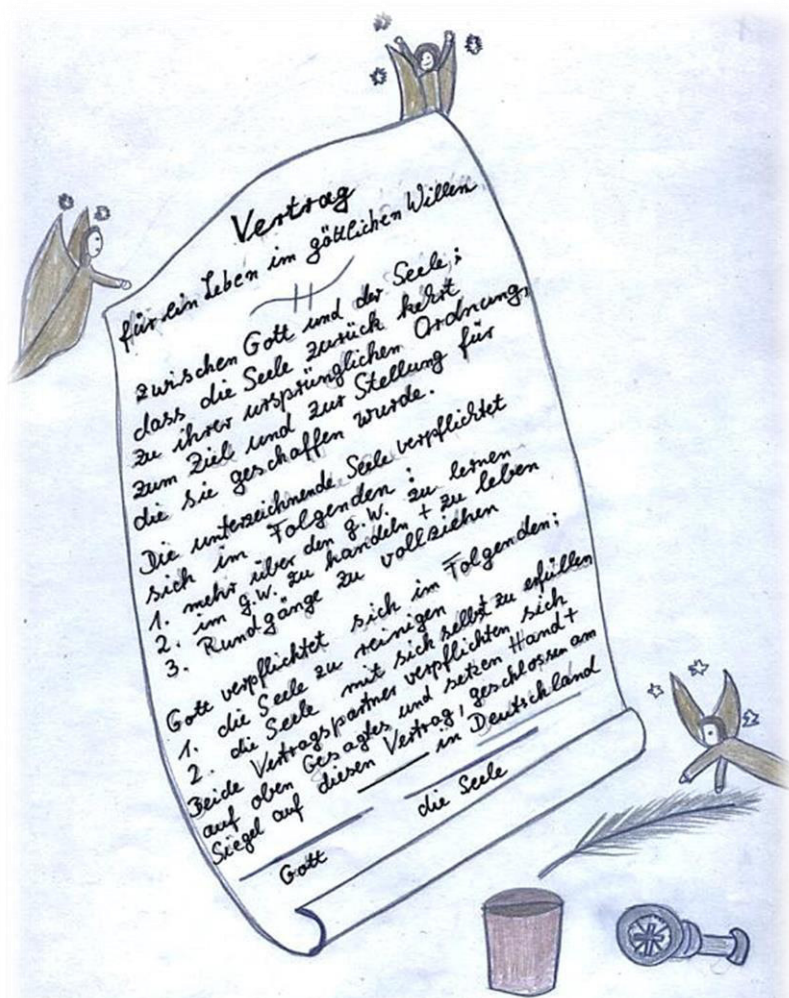 Vertrag
für ein Leben im göttlichen Willen
zwischen Gott und der Seele;
dass die Seele zurück kehrt
zu ihrer ursprünglichen Ordnung,
zum Ziel und zur Stellung für
die sie geschaffen wurde.
Die unterzeichnende Seele verpflichtet
sich im Folgenden:
1. mehr über den g.W. zu lernen
2. im g.W. zu handeln + zu leben
3. Rundgänge zu vollziehen
Gott verpflichtet sich im Folgenden:
1. die Seele zu reinigen +
2. die Seele mit sich selbst zu erfüllen
Beide Vertragspartner verpflichten sich
auf oben Gesagtes und setzen Hand +
Siegel auf diesen Vertrag, geschlossen am
in Deutschland
Gott die Seele